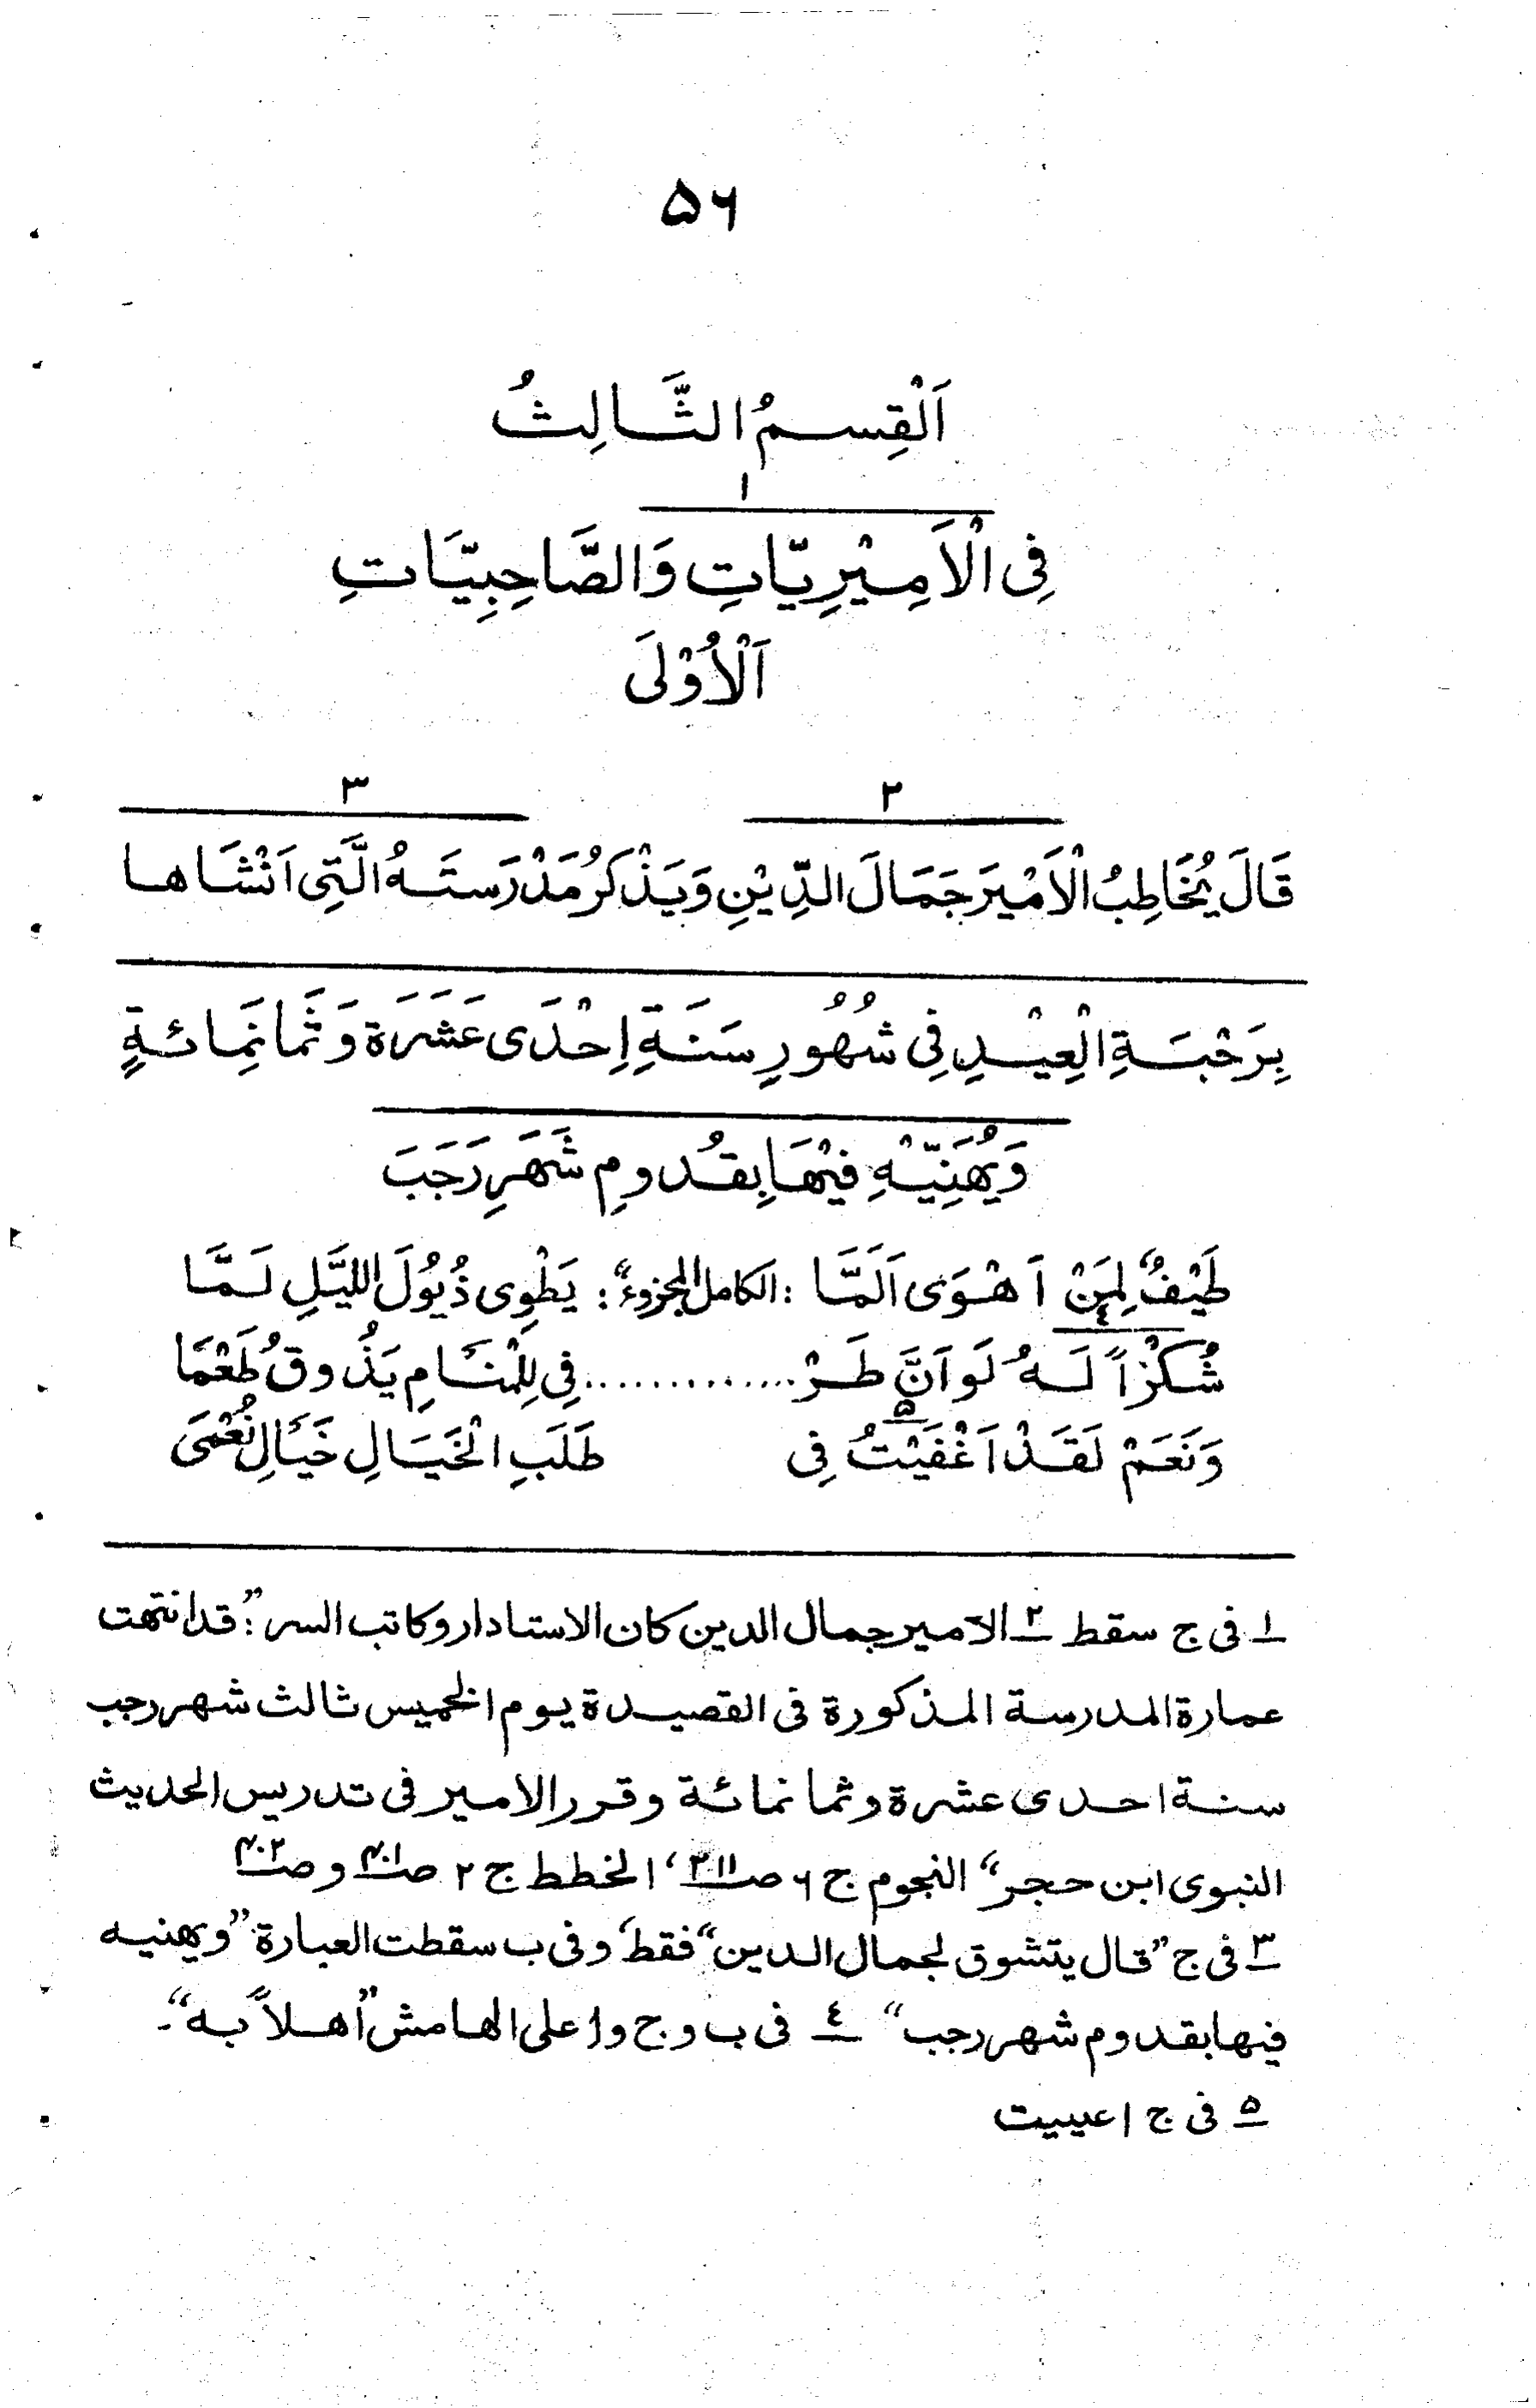 ۵۶
اَلْقِسمُ الثَّالِثُ
۱
فِی الْاَمِیْرِیّاتِ وَالصَّاحِبِیَّاتِ
اَلْاُوْلَی
۲ ۳
قَالَ یُخَاطِبُ الْاَمْیَرَ جَمَالَ الدِّیْنِ وَیَذْکُرُ مَدْرَستَهُ الَّتِی اَنْشَاها
بِرَحْبَةِ الْعِیْدِ فِی شُهُورِ سَنَةِ اِحْدَی عَشَرَة وَثَمانِمَائةٍ
وَیُهَنِّیْهِ فیْهَا بِقُدومِ شَهَرِ رَجَبَ
طَیْفٌ لِمَنْ اَهْوَی اَلَمَّا : "الکامل المجزوء" : یَطْوِی ذُیُولَ اللیَّلِ لَمَّا
٤
شُکْراً لَهُ لَو اَنَّ طَرْ............. فِی لِلْمنَامِ یَذُوقُ طَعْمَا
۵
وَنَعَمْ لَقَدْ اَغْفَیْتُ فِی طَلَبِ الْخَیَالِ خَیَالِ نُعْمَی
۱ فی ج سقط ۲ الآمیر جمال الدین کان الاستادار وکاتب السر : "قد انتهت
عمارة المدرسة المذکورة فی القصیدة یوم الخمیس ثالث شهر رجب
سنة احدی عشرة وثمانمائة وقرر الامیر فی تدریس الحدیث
النبوی ابن حجر" النجوم ج ۶ ص ۳۱۱، الخطط ج ۲ ص ۴۰۱ و ص ۴۰۲
۳ فی ج "قال یتشوق لجمال الدین" فقط، وفی ب سقطت العبارة "ویهنیه
فیها بقدوم شهر رجب" ٤ فی ب و ج و ا علی الهامش "أهلاً به"۔
۵ فی ج اعییت